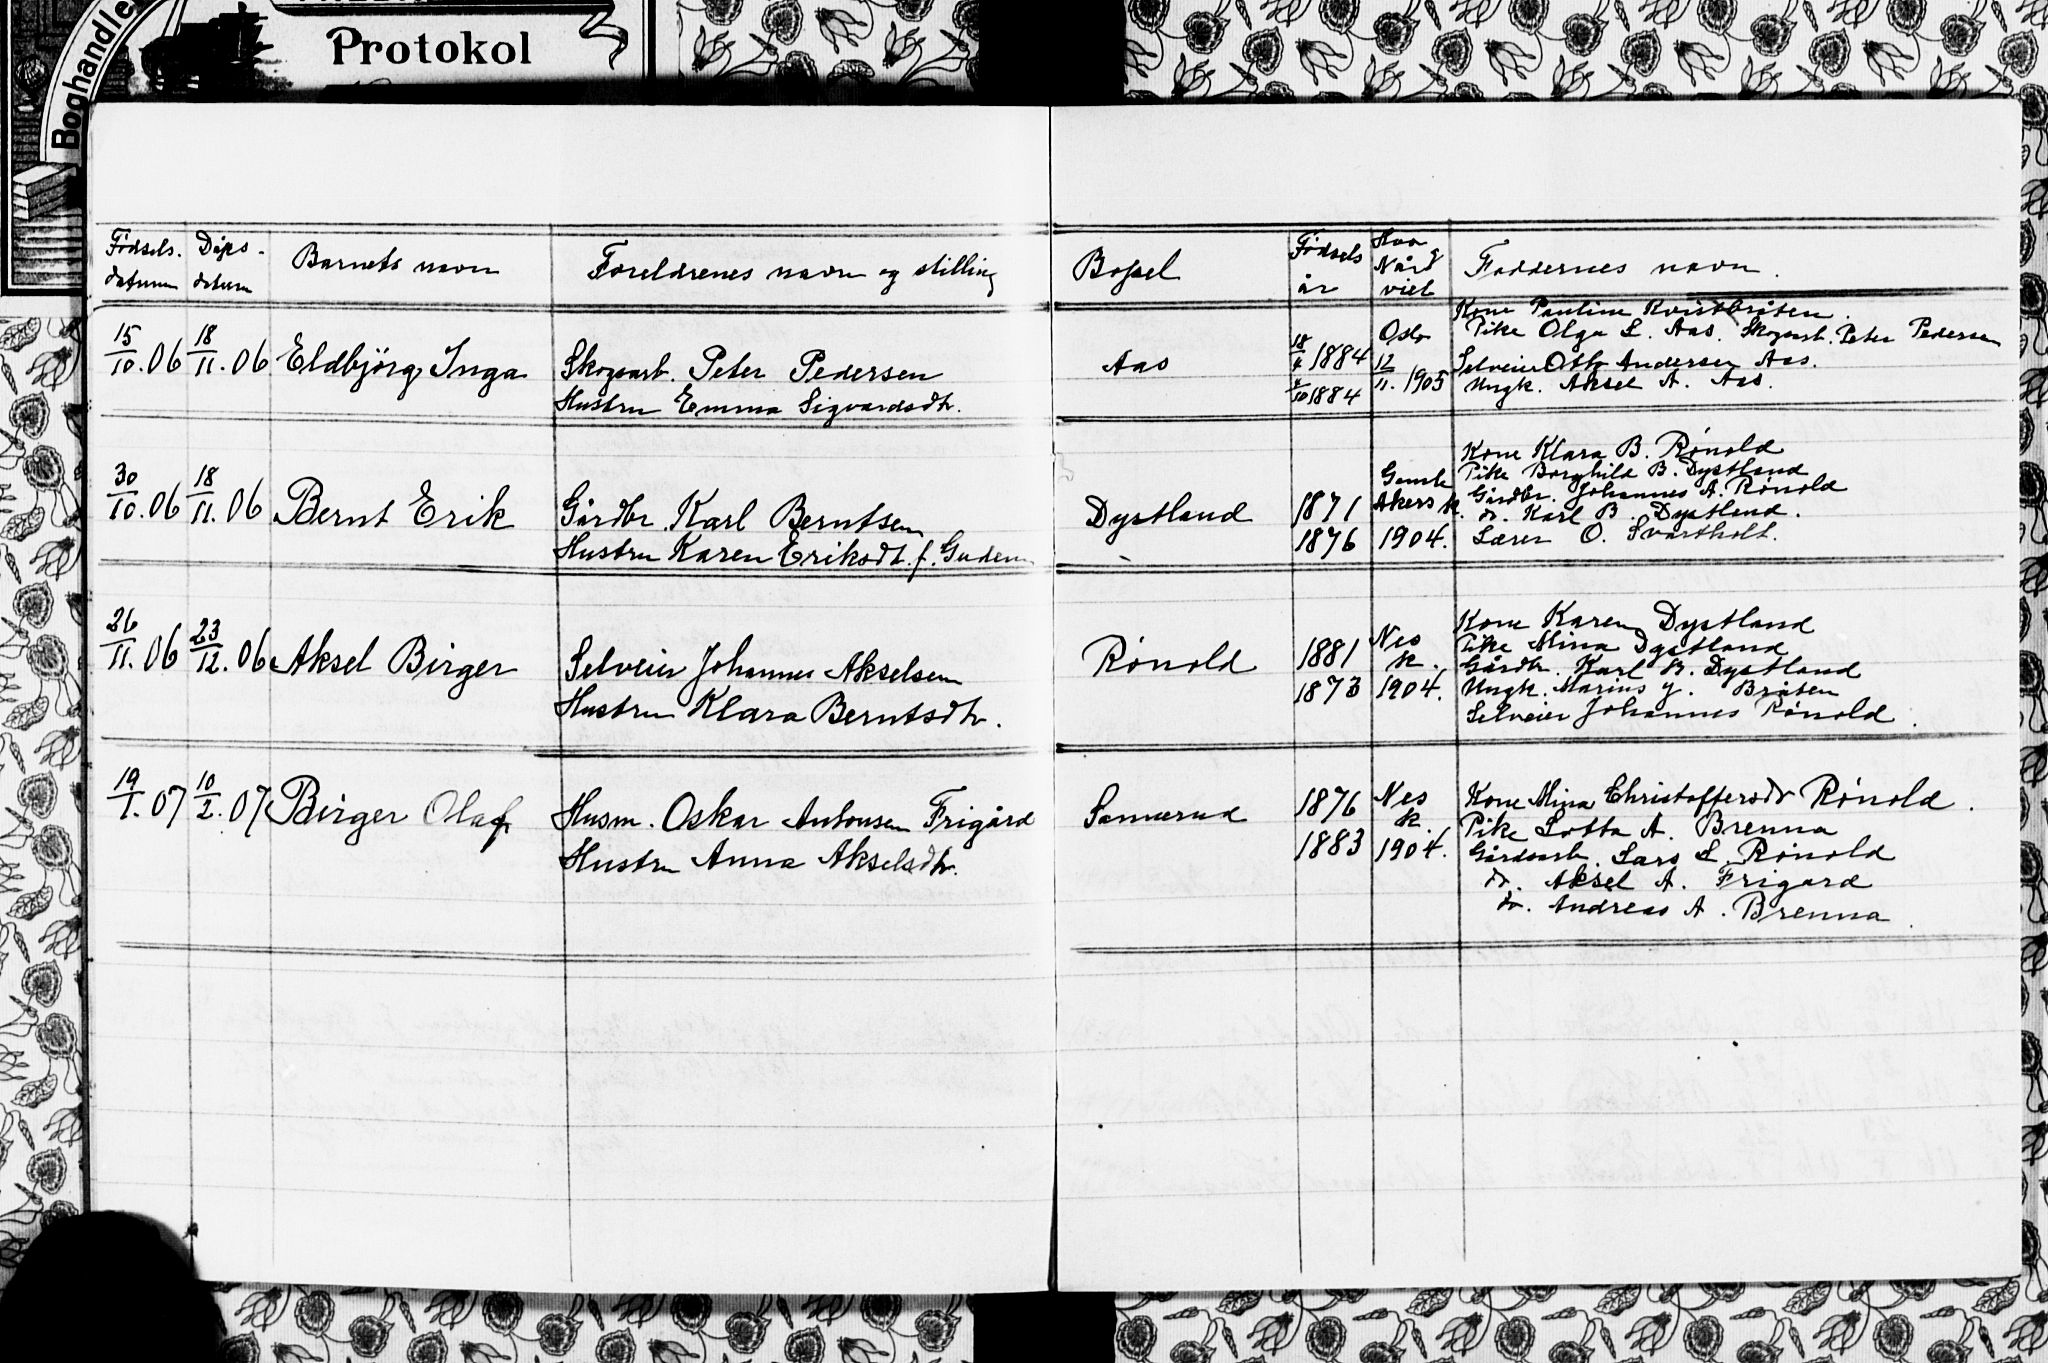 Boghandle
Protokol
Fødsels- datum
Døps- datum
Barnets navn
Foreldrenes navn og stilling
Bopel
Fødsels år
Hvor og Når viet
Faddernes navn.
15/10.06 18/11.06 Eldbjörg Inga
Skogsarb. Peter Pedersen
Hustru Emma Sigvardsdtr.
Aas
18/4 1884
4/10 1884
Oslo
12/11. 1905
Kone Pauline Kvistbråten.
Pike Olga L. Aas. Skogsarb. Peter Pedersen
Selveier Otto Andersen Aas.
Ungk. Aksel A. Aas.
30/10.06 18/11.06 Bernt Erik
Gårdbr. Karl Berntsen
Hustru Karen Eriksdt. f. Gudem
Dystland
1871
1876
Gamle
Akers k.
1904.
Kone Klara B. Rónold
Pike Borghild B. Dystland
Gårdbr. Johannes A. Rónold
do. Karl B. Dystland.
Lærer O. Svartholt.
26/11.06 23/12.06 Aksel Birger
Selveier Johannes Akselsen
Hustru Klara Berntsdtr.
Rónold
1881
1873
Nes
k.
1904.
Kone Karen Dystland
Pike Mina Dystland
Gårdbr. Karl B. Dystland
Ungk. Marius J. Bråten
Selveier Johannes Rónold.
19/1.07 10/2.07 Birger Olaf
Husm. Oskar Antonsen Frigård
Hustru Anna Akselsdtr.
Sannerud
1876
1883
Nes
k.
1904.
Kone Mina Christoffersdtr Rónold.
Pike Lotta A. Brenna
Gårdsarb. Lars L. Rónold
do. Aksel A. Frigard
do. Andreas A. Brenna